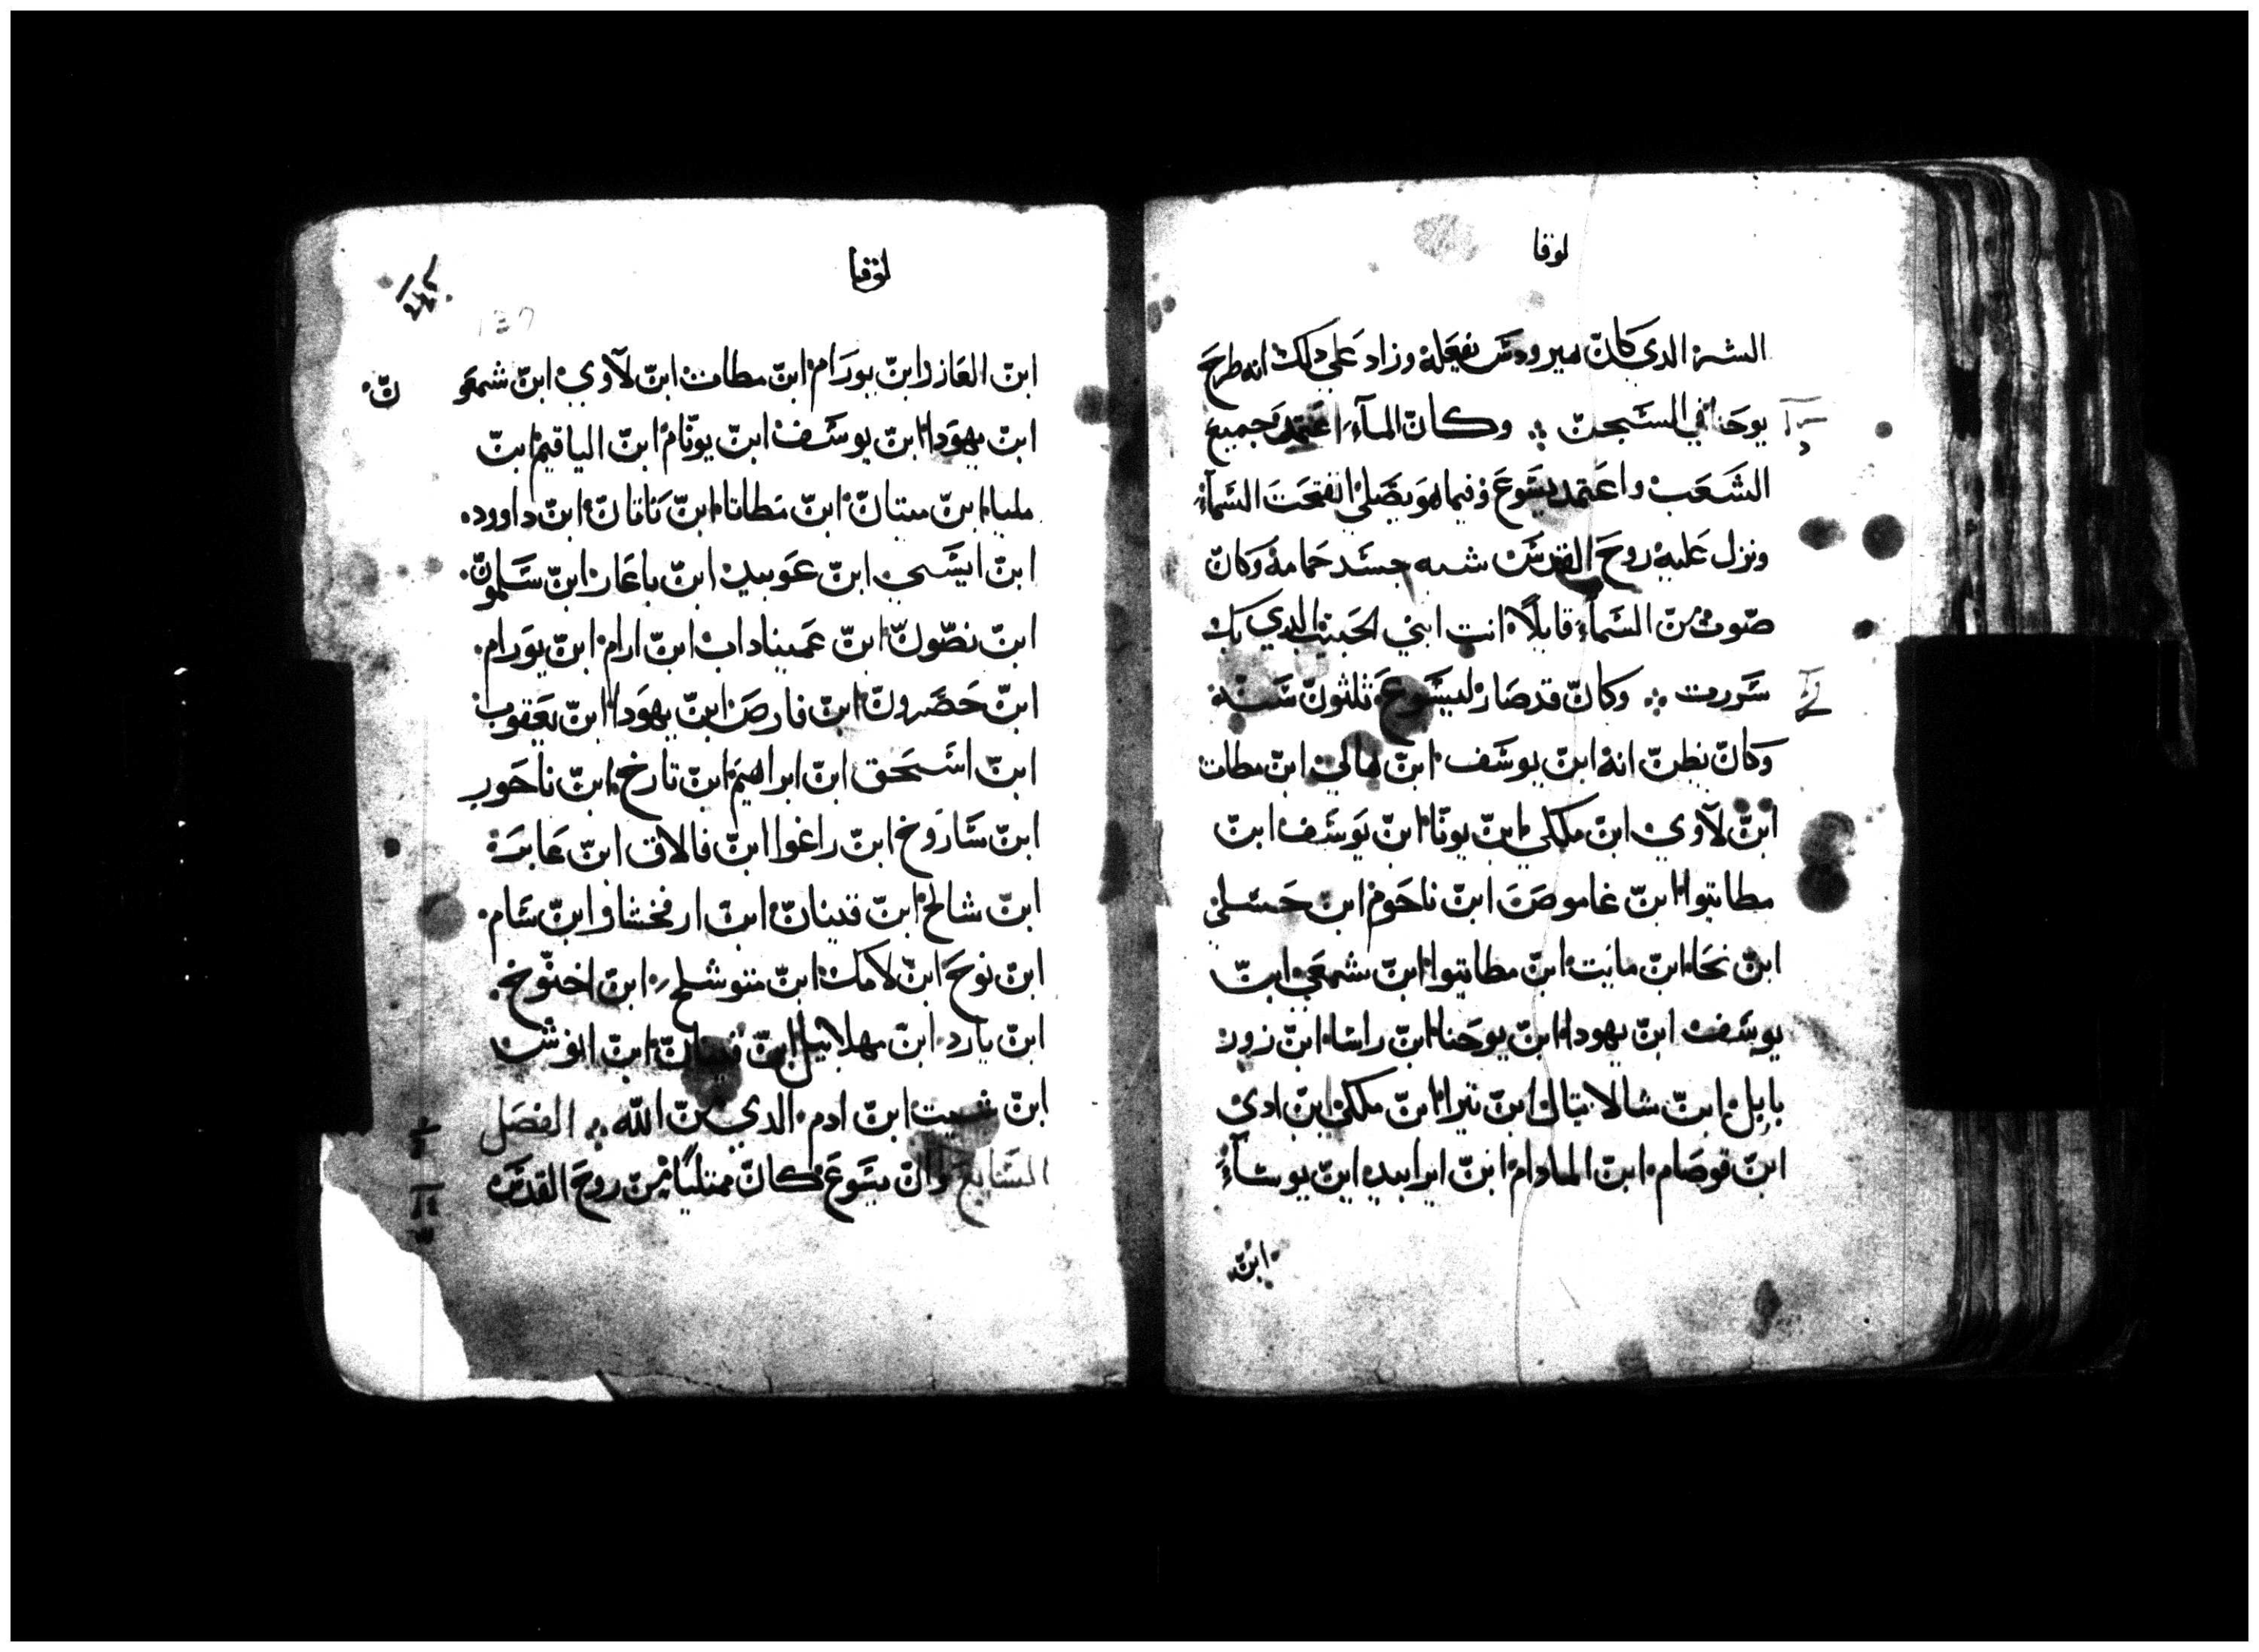 لوقا
الشر الدي كان هيرودس يفعله وزاد علي دلك انه طرح
يوحنا في السجن ܀ وكان لما اعتمد جميع
الشعب واعتمد يسوع وفيما هو يصلي انفتحت السماء
ونزل عليه روح القدس شبه جسد حمامة وكان
صوت من السماء قايلا انت ابني الحبيب الدي بك
سررت ܀ وكان قد صار ليسوع ثلثون سنة
وكان يظن انه ابن يوسف ابن هالي ابن مطات
ابن لاوي ابن ملكي ابن يونا ابن يوسف ابن
مطاتيوا ابن عاموص ابن ناحوم ابن حسلي
ابن نحا ابن مايت ابن مطاتيوا ابن شمعي ابن
يوسف ابن يهودا ابن يوحنا ابن راسا ابن زور
بابل ابن شالاتيال ابن نيرا ابن ملكي ابن ادي
ابن قوصام ابن المادام ابن ايرابيد ابن يوساء
ابن
لوقا
137
ابن العازر ابن يورام ابن مطات ابن لاوي ابن شمعون
ابن يهودا ابن يوسف ابن يونام ابن الياقيم ابن
مليا ابن مينان ابن مطاتا ابن ناتان ابن داوود
ابن ايسي ابن عوبيد ابن باعاز ابن سلمون
ابن نصون ابن عميناداب ابن ارام ابن يورام
ابن حضرون ابن فارص ابن يهودا ابن يعقوب
ابن اسحق ابن ابراهيم ابن تارخ ابن ناحور
ابن ساروخ ابن راغوا ابن فالاق ابن عابر
ابن شالخ ابن قينان ابن ارفخشاد ابن سام
ابن نوح ابن لامك ابن متوشلح ابن اخنوخ
ابن يارد ابن مهلاييل ابن قينان ابن انوش
ابن شيت ابن ادم الدي من الله ܀ الفصل
السابع وان يسوع كان ممتليا من روح القدس